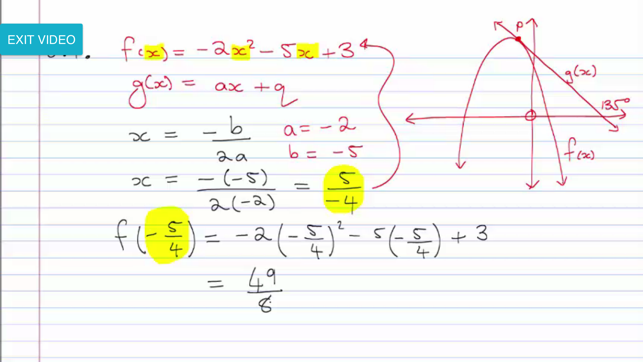 EXIT VIDEO
f(x) = -2x² - 5x + 3
g(x) = ax + q
x = -b / 2a
a = -2
b = -5
x = -(-5) / 2(-2) = 5 / -4
f(-5/4) = -2(-5/4)² - 5(-5/4) + 3
= 49/8
P
g(x)
135°
f(x)